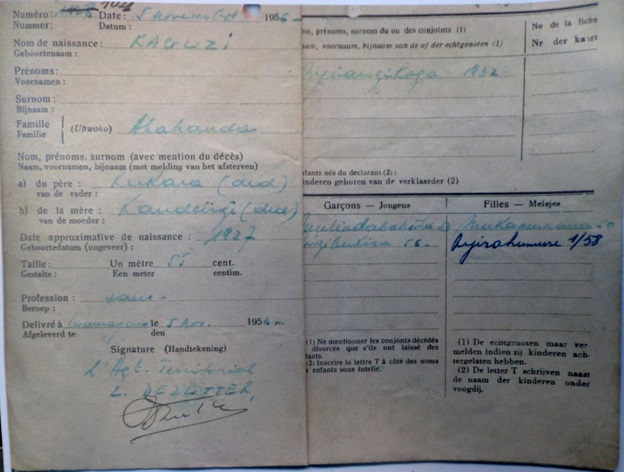 Numéro: 104 Date: 5 novembre 1956
Nummer: Datum:
Nom de naissance: KAGUZI
Geboortenaam:
Prénoms:
Voornamen:
Surnom:
Bijnaam:
Famille (Ubwoko) Abahanda
Familie
Nom, prénoms, surnom (avec mention du décès)
Naam, voornamen, bijnaam (met melding van het afsterven)
a) du père: Lukara (dcd)
van de vader:
b) de la mère: (dcd)
van de moeder:
Date approximative de naissance: 1927
Geboortedatum (ongeveer):
Taille: Un mètre 55 cent.
Gestalte: Een meter centim.
Profession: sans
Beroep:
Délivré à le 5 nov. 1956
Afgeleverd te den
Signature (Handtekening)
L'Agt. Territorial
L. DEZUTTER,
om, prénoms, surnom du ou des conjoints (1)
aam, voornaam, bijnaam van de of der echtgenoten (1)
No de la fiche
Nr der kaart
1932
fants nés du declarant (2):
inderen geboren van de verklaarder (2)
Garçons — Jongens
Filles — Meisjes
56
Nyirahumure 1/58
(1) Ne mentionner les conjoints décédés
divorcés que s'ils ont laissé des
fants.
(2: Inscrire la lettre T à côté des noms
s enfants sous tutelle.
(1) De echtgenoten maar ver
melden indien zij kinderen ach-
tergelaten hebben.
(2) De letter T schrijven naast
de naam der kinderen onder
voogdij.